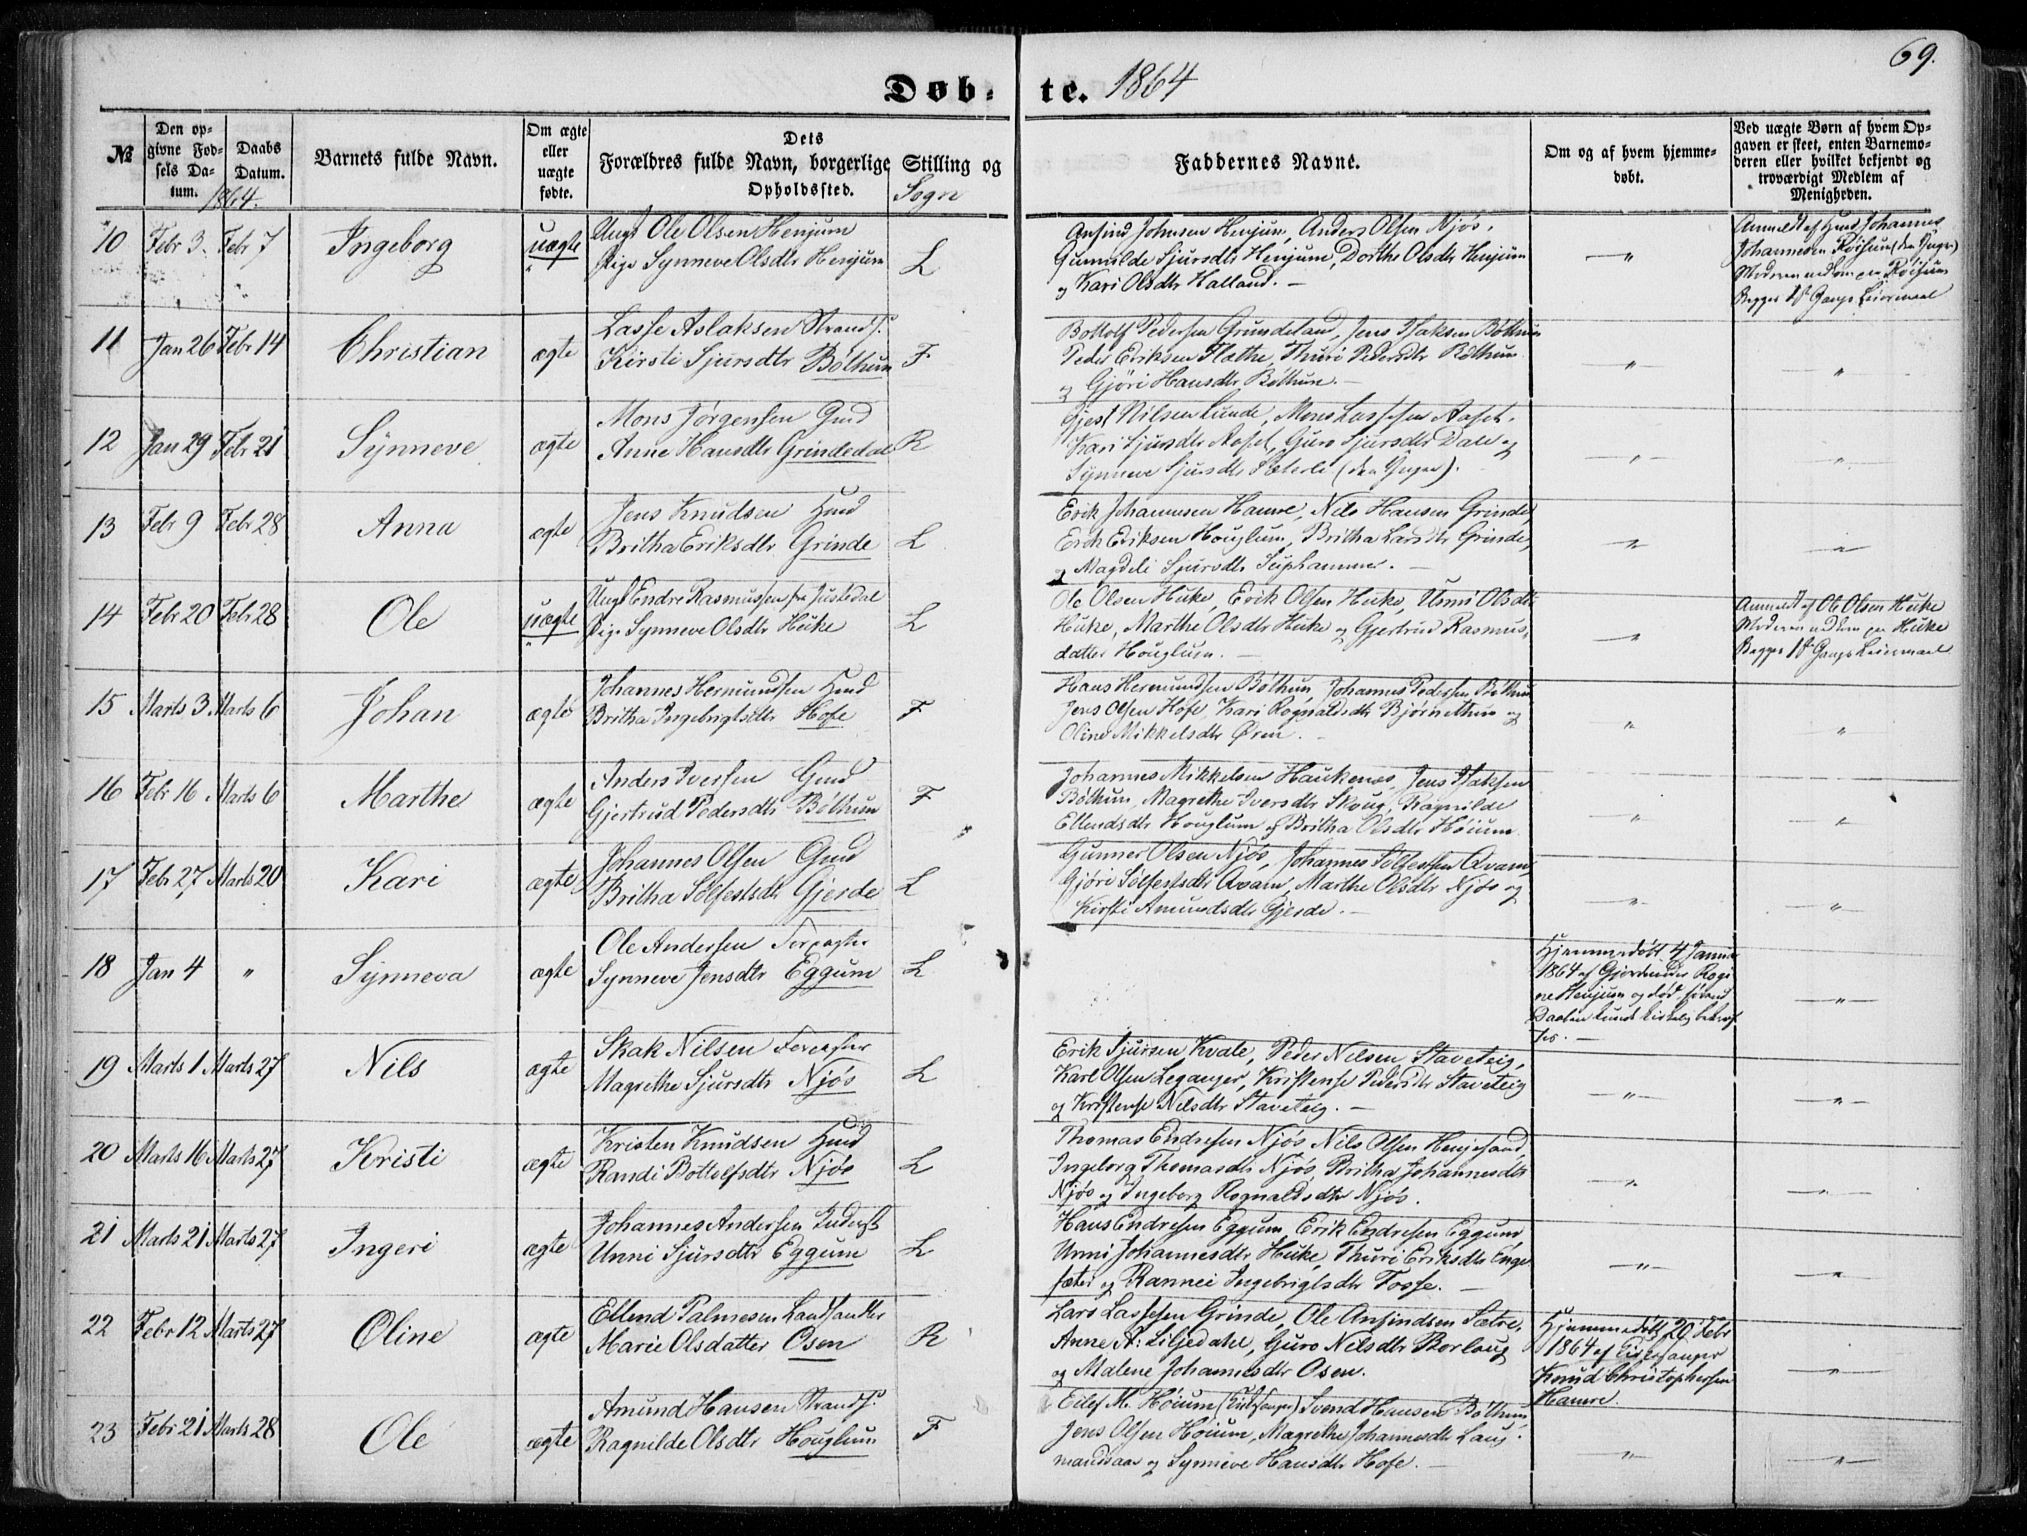 69.
Døb- te. 1864
№
Den op-
givne Fød-
sels Da-
tum.
1864.
Daabs
Datum.
Barnets fulde Navn.
Om ægte
eller
uægte
fødte.
Dets
Forældres fulde Navn, borgerlige Stilling og
Opholdssted.
Sogn
Faddernes Navne.
Om og af hvem hjemme-
døbt.
Ved uægte Børn af hvem Op-
gaven er skeet, enten Barnemo-
deren eller hvilket bekjendt og
troværdigt Medlem af
Menigheden.
10 Febr 3. Febr 7 Ingeborg uægte
Ungk Ole Olsen Henjum
Pige Synneve Olsdtr Henjum L
Ansind Johnsen Henjum, Anders Olsen Njøs,
Gunnilde Sjursdtr Henjum, Dorthe Olsdtr Henjum
og Kari Olsdtr Halland. —
— " —
Anmeldt af Johannes
Johannesen Røisum (den Yngre)
Moderen pa Røisum
Begges 1st Gangs Leiermaal
11 Jan 26 Febr 14 Christian ægte
Lasse Aslaksen Strands.
Kirsti Sjursdtr Bøthun F
Bottolf Pedersen Grundeland, Jens Isaksen Bøthun
Peder Eriksen Flæthe, Thuri Pedersdtr Bøthun
og Gjøri Hansdtr Bøthun. —
— " —
— " —
12 Jan 29 Febr 21 Synneve ægte
Mons Jørgensen Gmd
Anne Hansdtr Grindedal R
Gjest Nilsen Lunde, Mons Lassesen Aaset,
Kari Sjursdtr Aaset, Guro Sjursdtr Dale og
Synneve Sjursdtr Sæterli (den Yngre).
— " —
— " —
13 Febr 9 Febr 28 Anna ægte
Jens Knudsen Hmd
Britha Eriksdtr Grinde L
Erik Johannesen Hamre, Nils Hansen Grinde,
Erik Eriksen Houglum, Britha Larsdtr Grinde,
og Magdeli Sjursdtr Suphammer. —
— " —
— " —
14 Febr 20 Febr 28 Ole uægte
Ungk Endre Rasmussen fra Justedal
Pige Synneve Olsdtr Huke L
Ole Olsen Huke, Erik Olsen Huke, Unni Olsdtr
Huke, Marthe Olsdtr Huke og Gjertrud Rasmus-
datter Houglum. —
— " —
Anmeldt af Ole Olsen Huke
Moderen pa Huke
Begges 1st Gangs Leiermaal
15 Marts 3 Marts 6 Johan ægte
Johannes Hermundsen Hmd
Britha Ingebrigtsdtr Hofe F
Hans Hermundsen Bøthun, Johannes Pedersen Bøthun
Jens Olsen Hofe, Kari Rognaldsdtr Bjørnethun og
Oline Mikkelsdtr Øren. —
— " —
— " —
16 Febr 16 Marts 6 Marthe ægte
Anders Iversen Gmd
Gjertrud Pedersdtr Bøthun F
Johannes Mikkelsen Haukenæs, Jens Isaksen
Bøthun, Magrethe Iversdtr Skoug, Ragnilde
Ellendsdtr Houglum og Britha Olsdtr Høium.
— " —
— " —
17 Febr 27 Marts 20 Kari ægte
Johannes Olsen Gmd
Britha Sølfestsdtr Gjerde L
Gunner Olsen Njøs, Johannes Sølfestsen Qvam,
Gjøri Sølfestsdtr Qvam, Marthe Olsdtr Njøs og
Kirsti Amundsdtr Gjerde. —
— " —
— " —
18 Jan 4 " Synneva ægte
Ole Andersen Forpagter
Synneve Jensdtr Eggum L
Hjemmedøbt 4 Januar
1864 af Gjordmoder Regi-
ne Henjum og død, førend
Daaben kunde kirkelig bekræf-
tes. —
— " —
19 Marts 1 Marts 27 Nils ægte
Skak Nilsen Forpagter
Magrethe Sjursdtr Njøs L
Erik Sjursen Kvale, Peder Nilsen Staveteig,
Karl Olsen Leganger, Kristense Pedersdtr Staveteig
og Kristense Nilsdtr Staveteig. —
— " —
— " —
20 Marts 16 Marts 27 Kristi ægte
Kristen Knudsen Hmd
Randi Bottolfsdtr Njøs L
Thomas Endresen Njøs, Nils Olsen Henjesand,
Ingeborg Thomasdtr Njøs, Britha Johannesdtr
Njøs og Ingeborg Rognaldsdtr Njøs.
— " —
— " —
21 Marts 21 Marts 27 Ingeri ægte
Johannes Andersen Inderst
Unni Sjursdtr Eggum L
Hans Endresen Eggum, Erik Endresen Eggum,
Unni Johannesdtr Huke, Thuri Eriksdtr Enge-
sæter og Rannei Ingebrigtsdtr Fosse. —
— " —
— " —
22 Febr 12 Marts 27 Oline ægte
Ellend Palmesen Landhandler
Marie Olsdatter Osen R
Lars Lassesen Grinde, Ole Ansindsen Sætre,
Anne A: Liljedahl, Guro Nilsdtr Borlaug
og Malene Johannesdtr Osen.
Hjemmedøbt 20 Febr
1864 af Kirkesanger
Knud Christophersen
Hamre.
— " —
23 Febr 21 Marts 28 Ole ægte
Amund Hansen Strands.
Ragnilde Olsdtr Houglum F
Eilef M. Høium (Kirkesanger) Svend Hansen Bøthun
Jens Olsen Høium, Magrethe Johannesdtr Laug-
mandsaas og Synneve Hansdtr Hofe. —
— " —
— " —